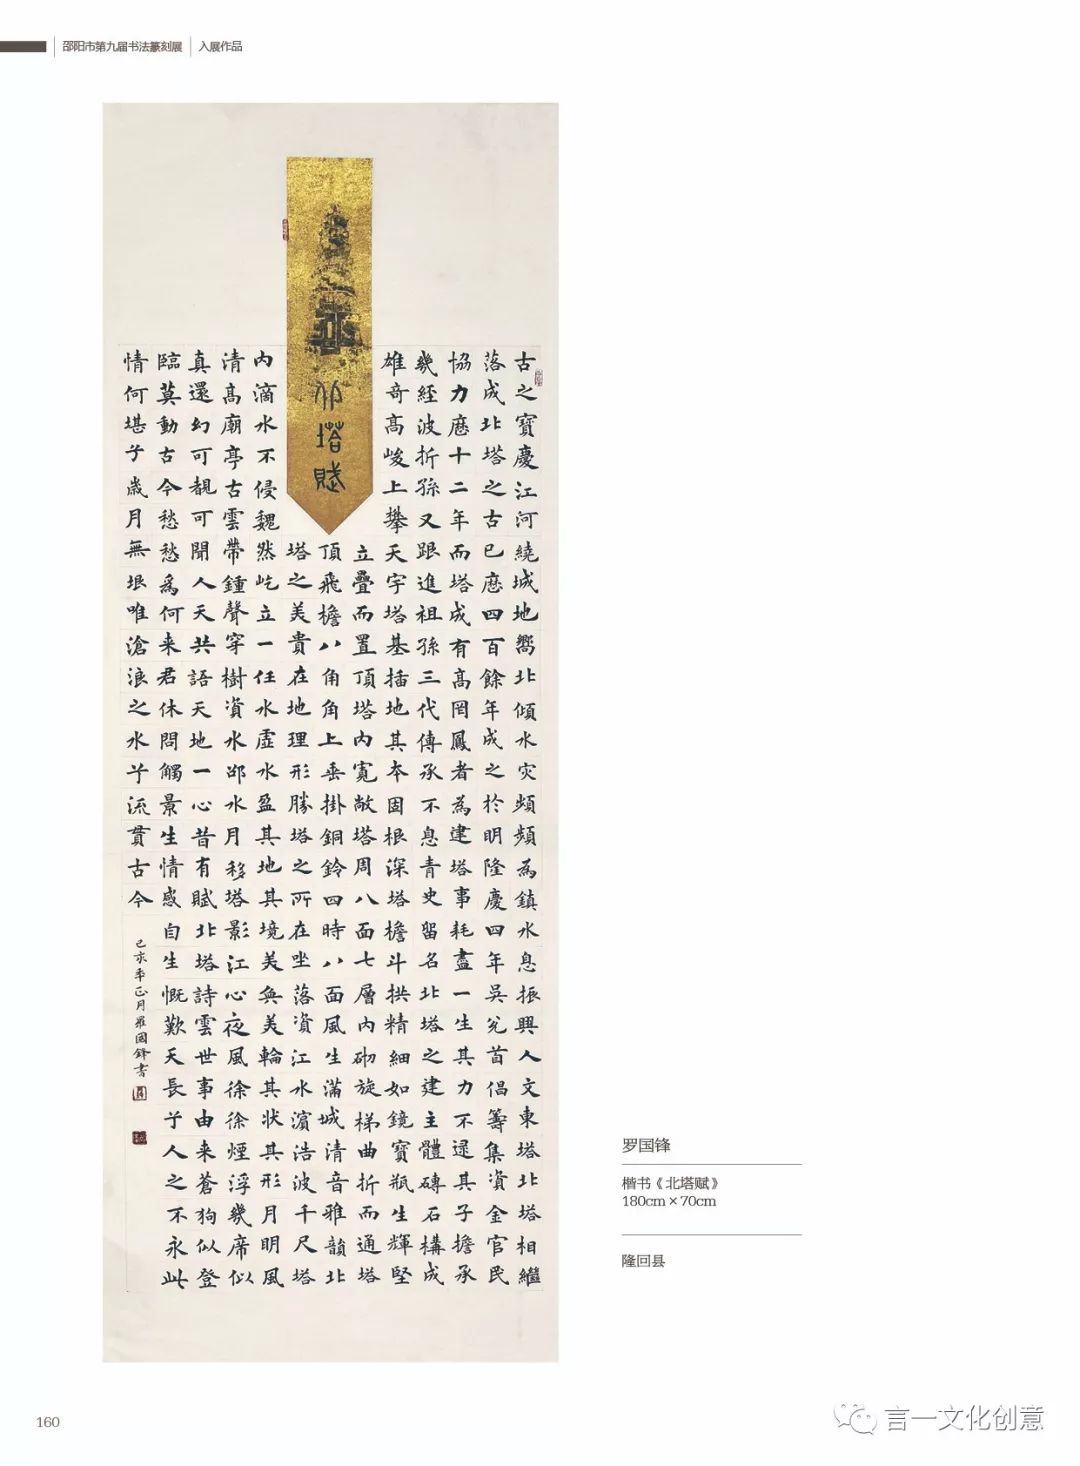 邵阳市第九届书法篆刻展 入展作品
北塔賦
古之寶慶江河繞城地嚮北傾水灾頻頻為鎮水息振興人文東塔北塔相繼
落成北塔之古已歷四百餘年成之於明隆慶四年吳兊首倡籌集資金官民
協力歷十二年而塔成有高罔鳳者為建塔事耗盡一生其力不逮其子擔承
幾經波折孫又跟進祖孫三代傳承不息青史留名北塔之建主體磚石構成
雄奇高峻上攀天宇塔基插地其本固根深塔檐斗拱精細如鏡寶瓶生輝堅
立疊而置頂塔内寬敞塔周八面七層内砌旋梯曲折而通塔
頂飛檐八角角上垂掛銅鈴四時八面風生滿城清音雅韻北
塔之美貴在地理形勝塔之所在坐落資江水濵浩波千尺塔
内滴水不侵魏然屹立一任水虛水盈其地其境美奐美輪其狀其形月明風
清高廟亭古雲帶鍾聲穿樹資水邵水月移塔影江心夜風徐徐煙浮幾席似
真還幻可覩可聞人天共語天地一心昔有賦北塔詩雲世事由来蒼狗似登
臨莫動古今愁愁為何来君休問觸景生情感自生慨歎天長兮人之不永此
情何堪兮歲月無垠唯滄浪之水兮流貫古今
己亥年正月羅國鋒書
罗国锋
楷书《北塔赋》
180cm×70cm
隆回县
160
言一文化创意